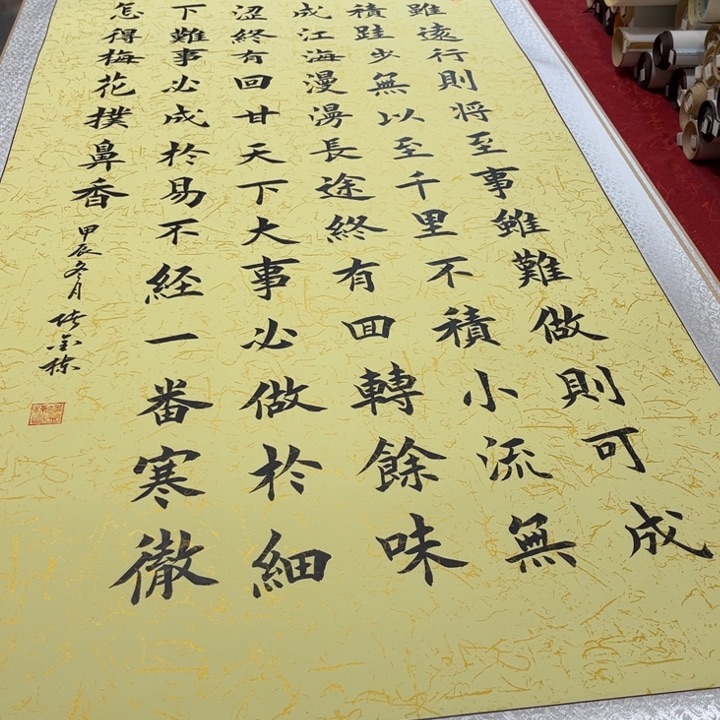 雖遠行則将至事雖難做則可成
積跬步無以至千里不積小流無
成江海漫漫長途終有回轉餘味
涩終有回甘天下大事必做於細
下難事必成於易不經一番寒徹
怎得梅花撲鼻香
甲辰冬月